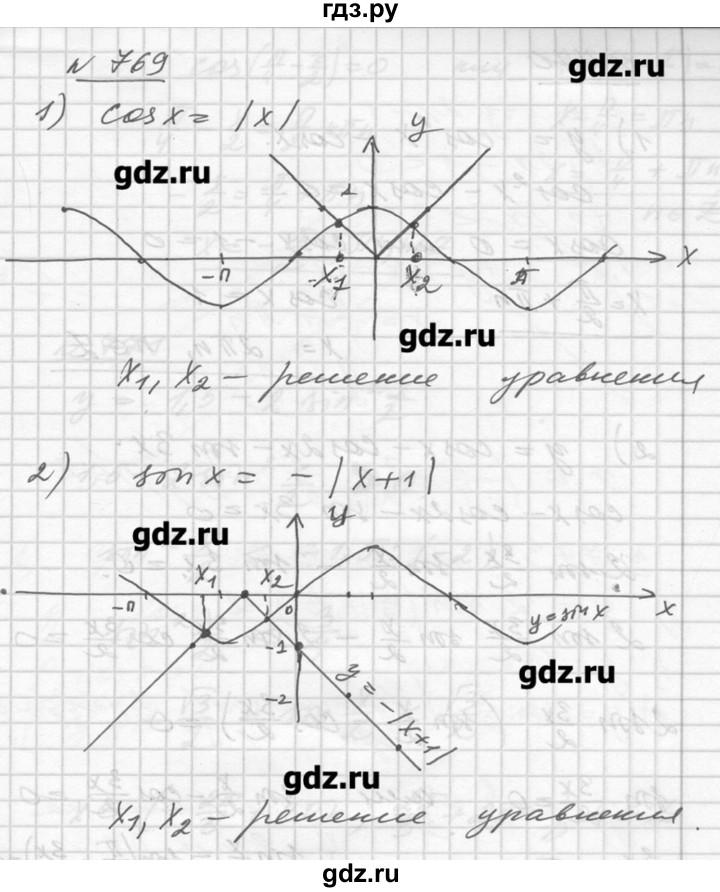 гдз.ру
N 769
gdz.ru
1) cos x = |x|
y
gdz.ru
1
-π x₁ x₂ π x
gdz.ru
x₁, x₂ – решение уравнения
2) sin x = - |x+1|
y
gdz.ru
x₁ x₂
-π 0 x
y = sin x
-1
gdz.ru
-2
y = -|x+1|
gdz.ru
x₁, x₂ – решение уравнения.
gdz.ru